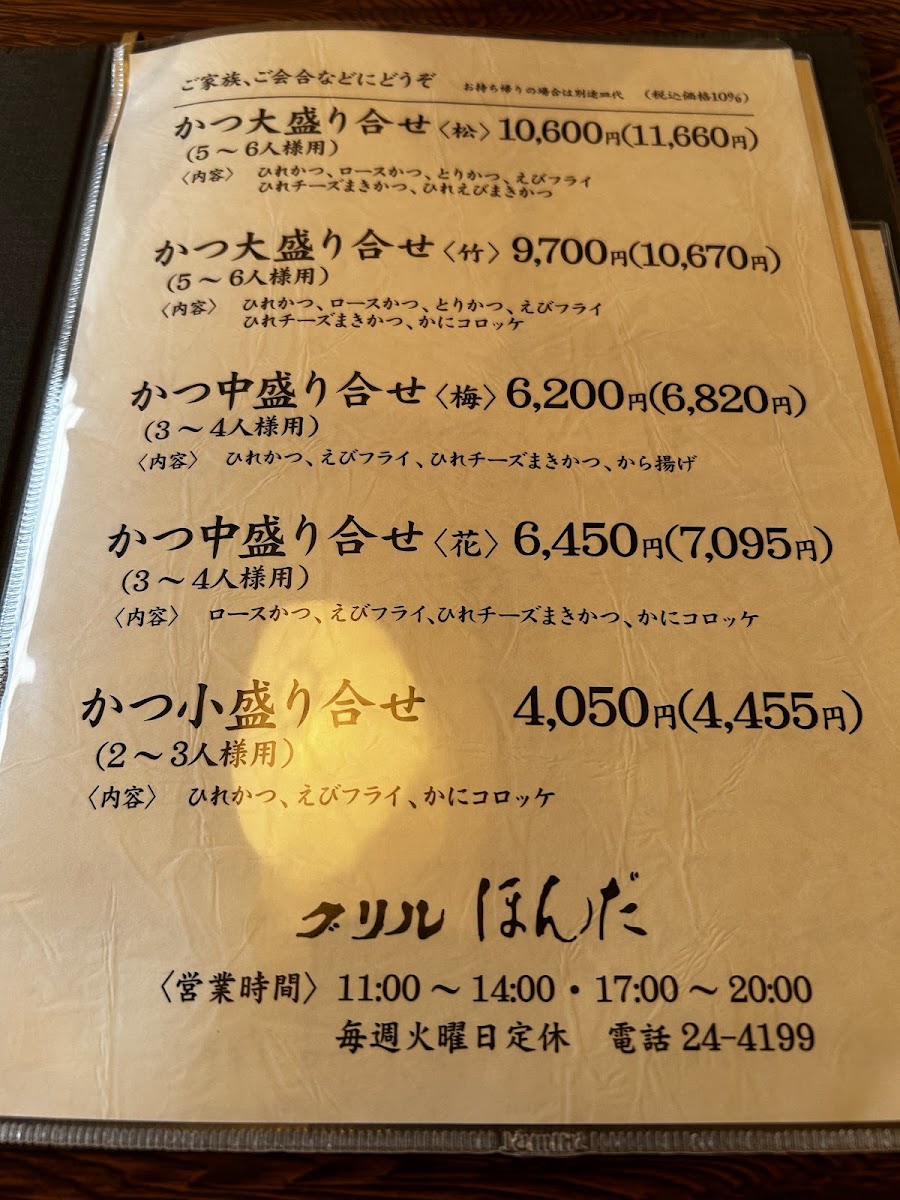 ご家族、ご会合などにどうぞ お持ち帰りの場合は別途皿代 (税込価格10%)
かつ大盛り合せ〈松〉10,600円(11,660円)
(5～6人様用)
〈内容〉 ひれかつ、ロースかつ、とりかつ、えびフライ
ひれチーズまきかつ、ひれえびまきかつ
かつ大盛り合せ〈竹〉9,700円(10,670円)
(5～6人様用)
〈内容〉 ひれかつ、ロースかつ、とりかつ、えびフライ
ひれチーズまきかつ、かにコロッケ
かつ中盛り合せ〈梅〉6,200円(6,820円)
(3～4人様用)
〈内容〉 ひれかつ、えびフライ、ひれチーズまきかつ、から揚げ
かつ中盛り合せ〈花〉6,450円(7,095円)
(3～4人様用)
〈内容〉 ロースかつ、えびフライ、ひれチーズまきかつ、かにコロッケ
かつ小盛り合せ 4,050円(4,455円)
(2～3人様用)
〈内容〉 ひれかつ、えびフライ、かにコロッケ
グリル ほんだ
〈営業時間〉11:00～14:00・17:00～20:00
毎週火曜日定休 電話 24-4199